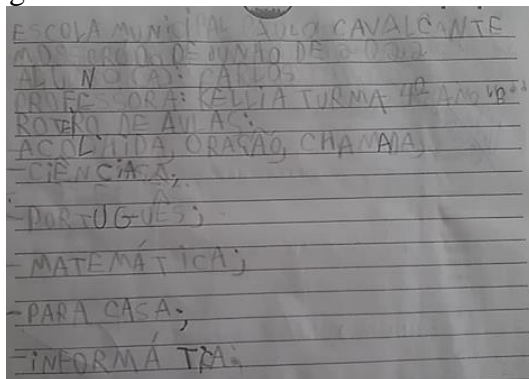 ESCOLA MUNICIPAL PAULO CAVALCANTE
MOSSORÓ, DE JUNHO DE 2022
ALUNO(A): CARLOS
PROFESSORA: KELLIA TURMA 4º ANO "B"
ROTERO DE AULAS:
ACOLHIDA, ORAÇÃO, CHAMADA,
- CIÊNCIAS;
- PORTUGUÊS;
- MATEMÁTICA;
- PARA CASA;
- INFORMÁTICA;